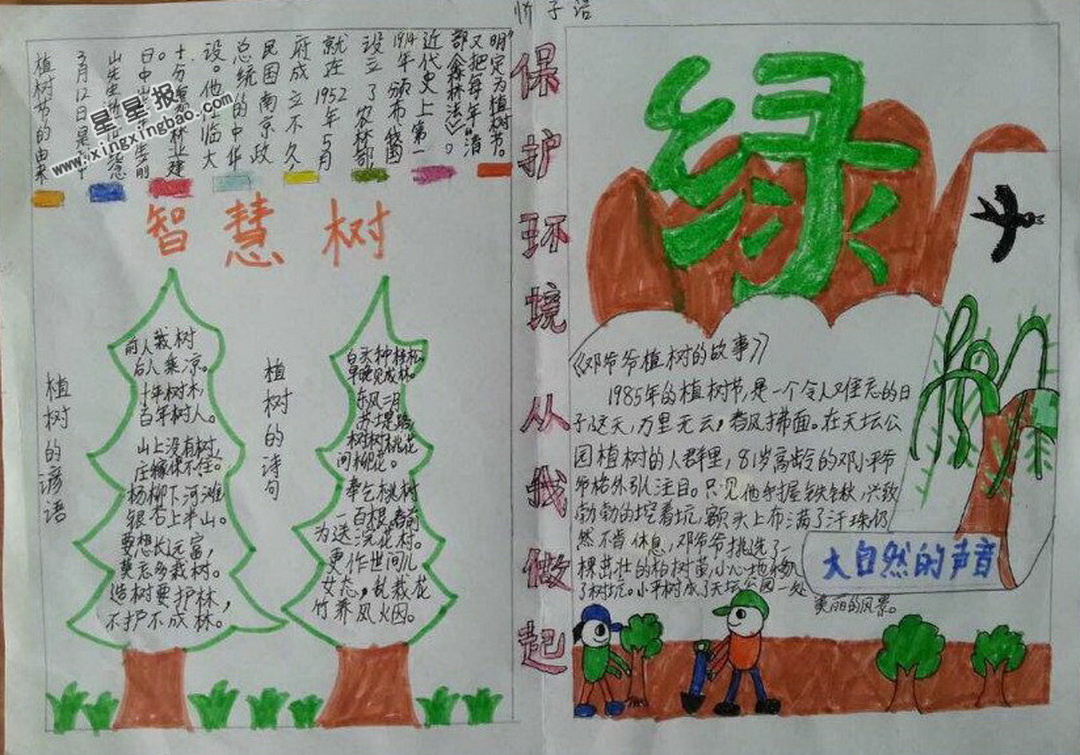 保护环境从我做起
植树节的由来
3月12日是
十分重林业建
设。他在临大
总统的中华
民国南京政
府成立不久
就在1952年5月
设立了农林部
1914年颁布我国
近代史上第一
部《森林法》。
又把每年“清
明”定为植树节。
星星报
www.xingxingbao.com
智慧树
植树的谚语
前人栽树
后人乘凉。
十年树木,
百年树人。
山上没有树,
庄稼保不住。
杨柳下河滩
银杏上半山。
要想长远富,
莫忘多栽树。
造树要护林,
不护不成林。
植树的诗句
白头种松桂,
早晚见成林。
东风二月
苏堤路
树树桃花
间柳花。
奉乞桃树
一百根,春前
为送浣花村。
更作世间儿
女态,乱栽花
竹养风烟。
绿
《邓爷爷植树的故事》
1985年的植树节,是一个令人难忘的日
子,这天,万里无云,春风拂面。在天坛公
园植树的人群里,81岁高龄的邓小平爷
爷格外引人注目。只见他手握铁锹,兴致
勃勃的挖着坑,额头上布满了汗珠,仍
然不肯休息,邓爷爷挑选了一
棵茁壮的柏树苗,小心地移
了树坑。小平树成了天坛公园一处
美丽的风景。
大自然的声音